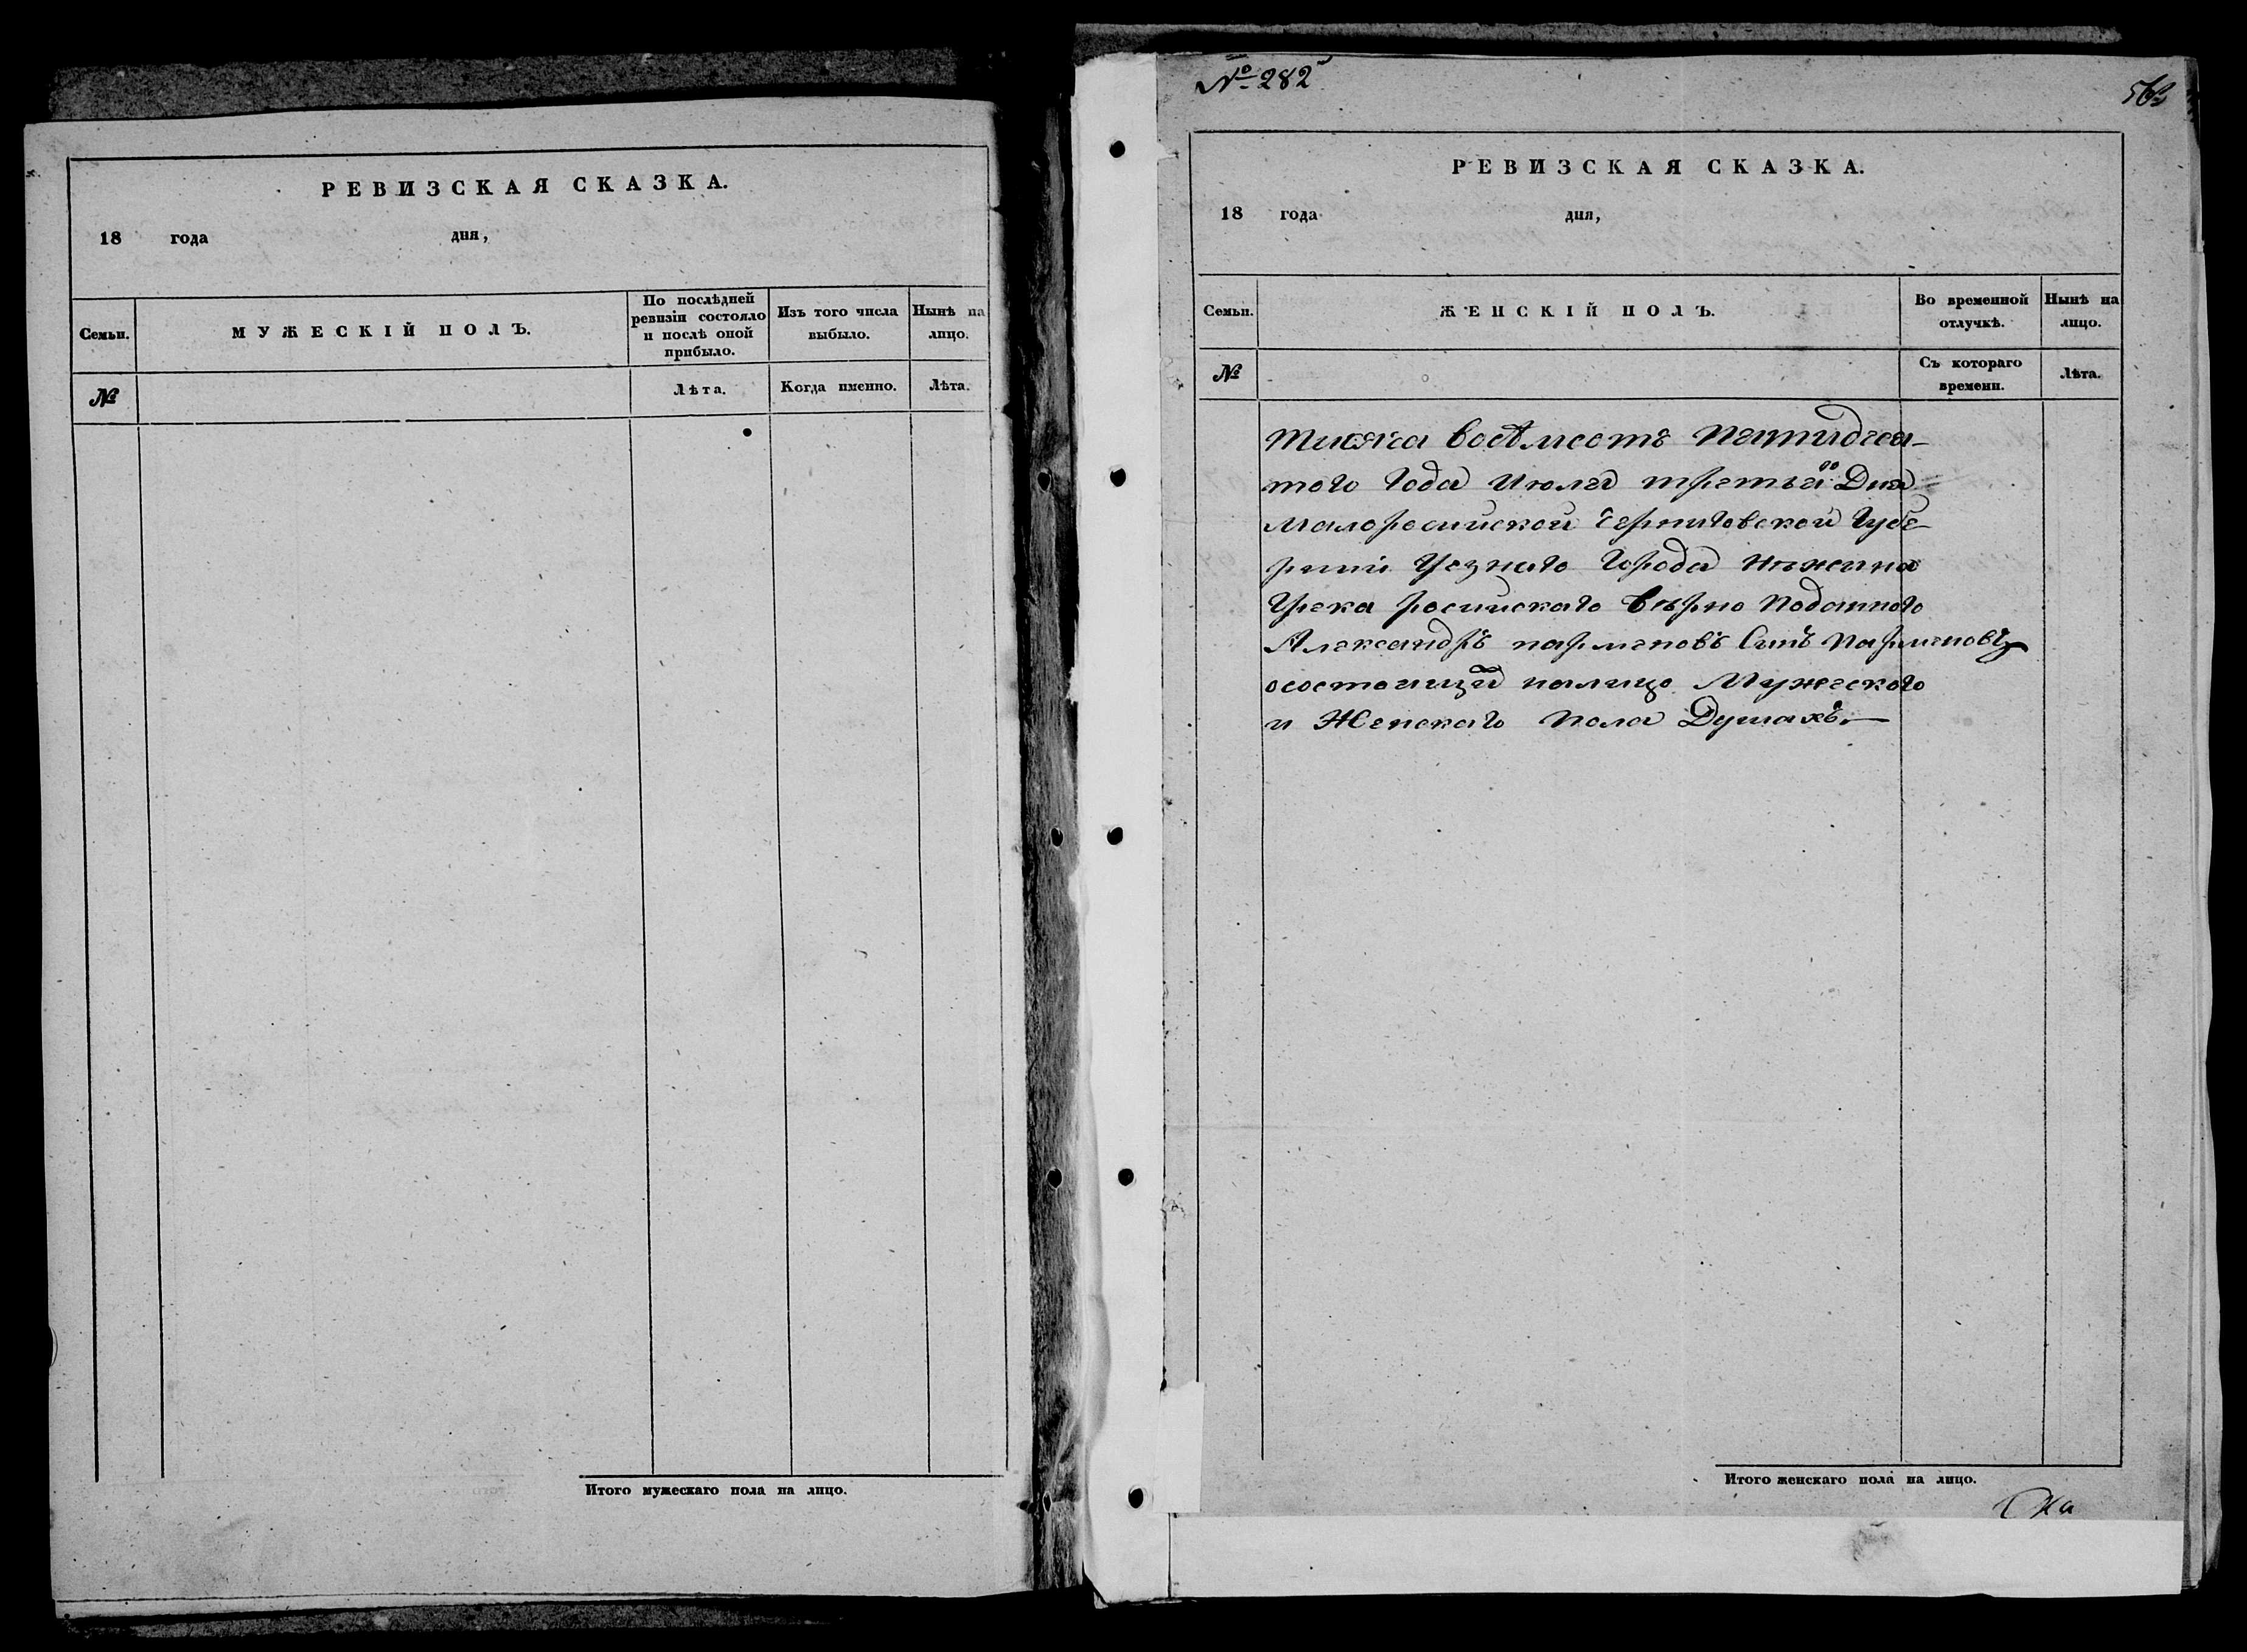 РЕВИЗСКАЯ СКАЗКА.
18 года дня,
Семьи.
МУЖЕСКІЙ ПОЛЪ.
По послѣдней ревизіи состояло и послѣ оной прибыло.
Изъ того числа выбыло.
Нынѣ на лицо.
№
Лѣта.
Когда именно.
Лѣта.
Итого мужескаго пола на лицо.
№ 282
РЕВИЗСКАЯ СКАЗКА.
18 года дня,
Семьи.
ЖЕНСКІЙ ПОЛЪ.
Во временной отлучкѣ.
Нынѣ на лицо.
№
Съ котораго времени.
Лѣта.
тисяча восѣмсотъ пятидеся-
того года Июля третья го Дня
Малоросийской Черниговской Губе-
рнии Уезнаго Города Нѣжина
Грека росийскаго вѣрно поданного
Александръ парменовъ Синъ парменовъ
осостоящий налицо Мужескаго
и Женскаго пола Душахъ.—
Итого женскаго пола на лицо.